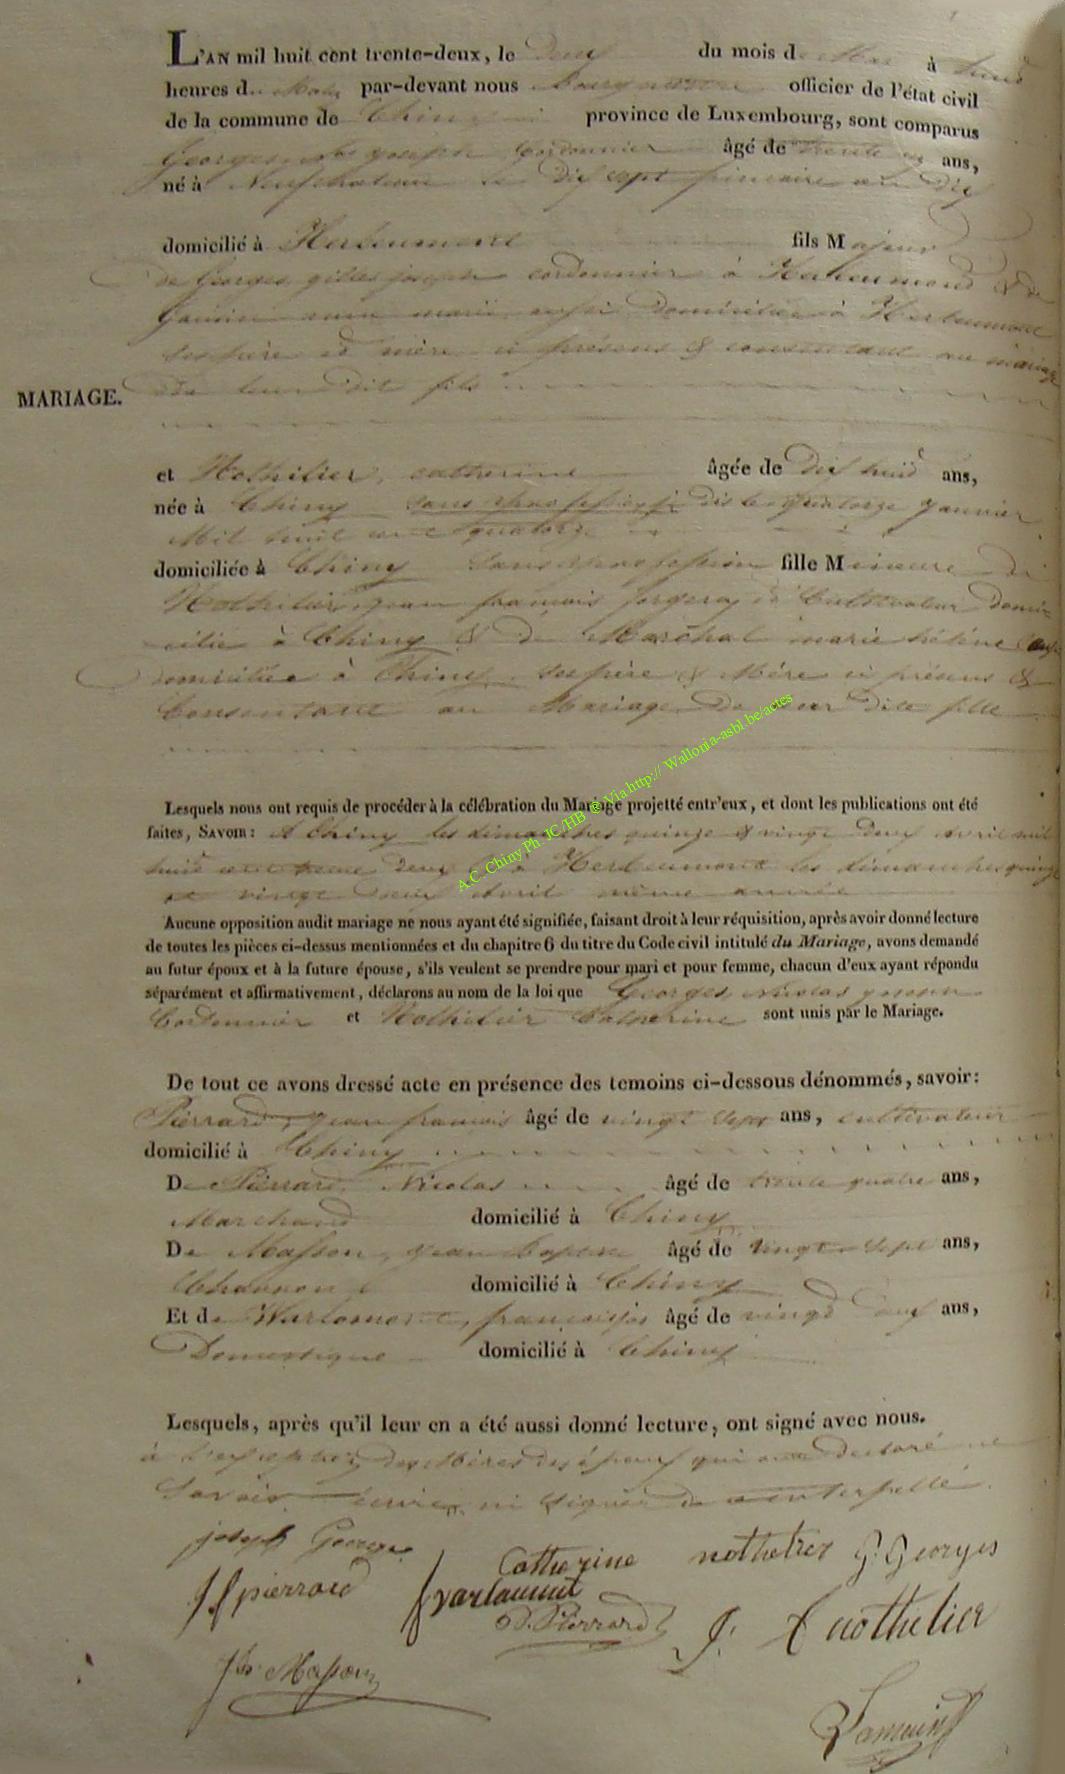 L'AN mil huit cent trente-deux, le deux du mois de Mai à huit
heures du Matin par-devant nous Bourgmestre officier de l'état civil
de la commune de Chiny province de Luxembourg, sont comparus
Georges, joseph, Cordonnier âgé de trente ans,
né à Neufchateau le dix sept frimaire an dix
domicilié à Herbeumont fils Majeur
de Georges gilles joseph cordonnier à Herbeumont & de
marie aussi domiciliée à Herbeumont
ses père et mère ci présens & consentant au mariage
de leur dit fils
MARIAGE.
et Nothelier, catherine âgée de dix huit ans,
née à Chiny sans profession le quatorze janvier
Mil huit cent quatorze
domiciliée à Chiny sans profession fille Mineure de
Nothelier, jean françois forgeron et Cultivateur domi-
cilié à Chiny & de Maréchal marie hélène aussi
domiciliée à Chiny, ses père & Mère ci présens &
Consentant au Mariage de leur dite fille
Lesquels nous ont requis de procéder à la célébration du Mariage projetté entr'eux, et dont les publications ont été
faites, SAVOIR: A Chiny les dimanches quinze & vingt deux avril mil
huit cent trente deux & à Herbeumont les dimanches quinze
et vingt deux avril même année
Aucune opposition audit mariage ne nous ayant été signifiée, faisant droit à leur réquisition, après avoir donné lecture
de toutes les pièces ci-dessus mentionnées et du chapitre 6 du titre du Code civil intitulé du Mariage, avons demandé
au futur époux et à la future épouse, s'ils veulent se prendre pour mari et pour femme, chacun d'eux ayant répondu
séparément et affirmativement, déclarons au nom de la loi que Georges, Nicolas joseph
Cordonnier et Nothelier Catherine sont unis par le Mariage.
De tout ce avons dressé acte en présence des temoins ci-dessous dénommés, savoir:
Pierrard, jean françois âgé de vingt sept ans, cultivateur
domicilié à Chiny
De Pierrard, Nicolas âgé de trente quatre ans,
Marchand domicilié à Chiny
De Masson, jean baptiste âgé de vingt sept ans,
domicilié à Chiny
Et de Warlomont, françois âgé de vingt deux ans,
Domestique domicilié à Chiny
Lesquels, après qu'il leur en a été aussi donné lecture, ont signé avec nous.
à l'exception des Mères des époux qui ont déclaré ne
Savoir écrire, ni signer de ce interpellé.
joseph Georges
Catherine nothelier G. Georges
J f pierrard f varlaumt
N. Pierrard J. f nothelier
J Bte Masson
Lamein
A.C. Chiny Ph. JC /HB @ Via http:// Wallonia-asbl.be/actes